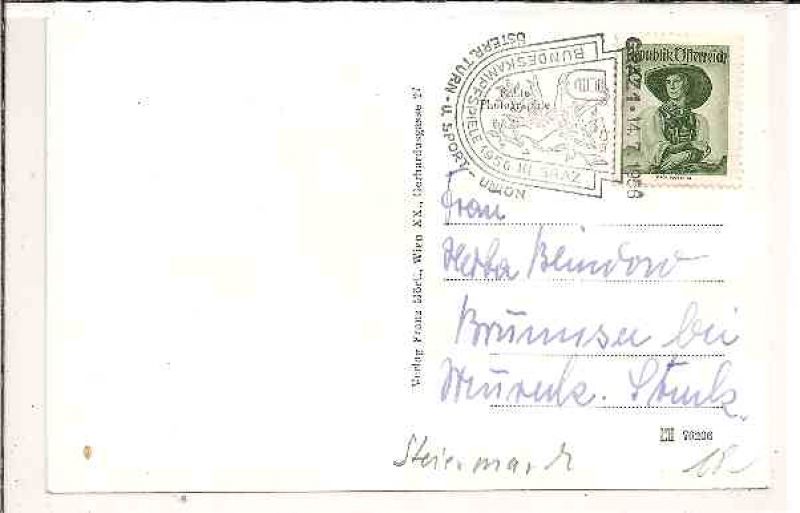 ÖSTERR. TURN- U. SPORT- UNION
BUNDESKAMPFSPIELE 1956 IN GRAZ
GRAZ 1 · 14.7.1956
Echte
Photographie
Republik Österreich
Verlag Franz Mörtl, Wien XX., Gerhardusgasse 27
Frau
Herta
Brunnsee bei
Steiermark
76206
18-